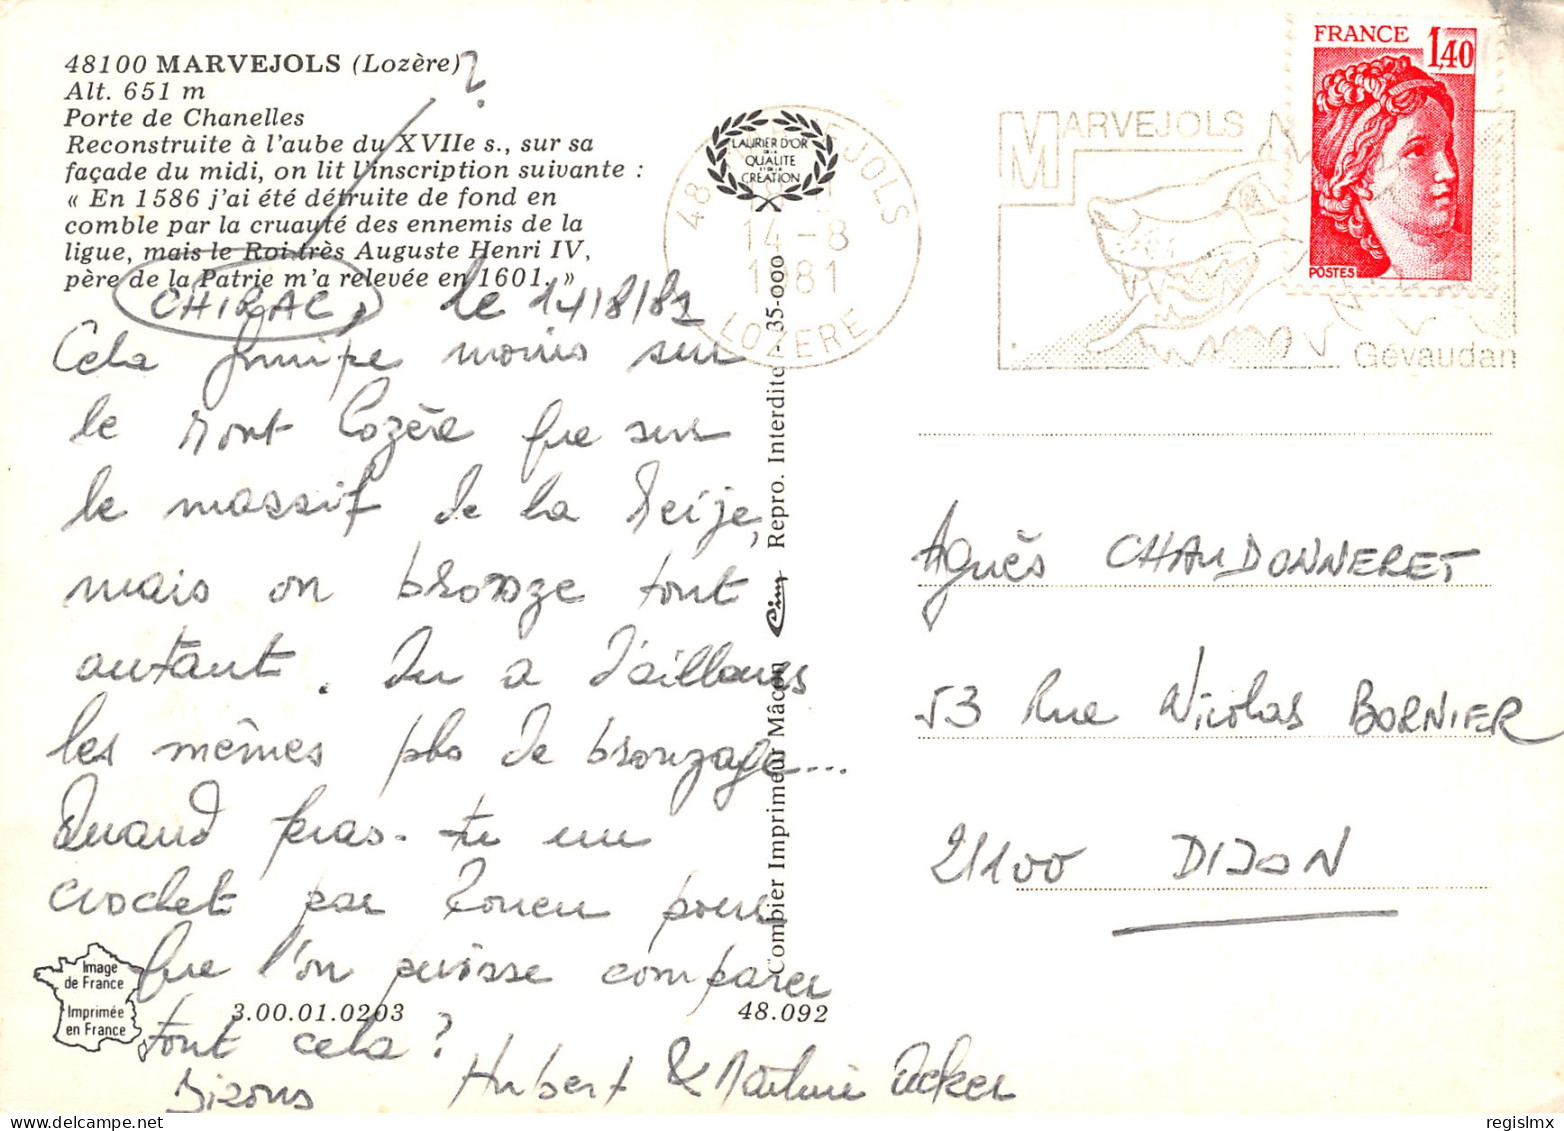 48100 MARVEJOLS (Lozère) ?
Alt. 651 m
Porte de Chanelles
Reconstruite à l'aube du XVIIe s., sur sa
façade du midi, on lit l'inscription suivante :
« En 1586 j'ai été détruite de fond en
comble par la cruauté des ennemis de la
ligue, mais le Roi très Auguste Henri IV,
père de la Patrie m'a relevée en 1601. »
CHIRAC, le 14/8/81
Cela grimpe moins sur
le Mont Lozère que sur
le massif de la Meije,
mais on bronze tout
autant. On a d'ailleurs
les mêmes pbs de bronzage...
Quand feras-tu un
crochet par Rouen pour
que l'on puisse comparer
tout cela ?
Bizous
Hubert & Martine Acker
Image
de France
Imprimée
en France
3.00.01.0203
48.092
LAURIER D'OR
DE LA
QUALITÉ
ET DE LA
CRÉATION
48 MARVEJOLS
14-8
1981
LOZERE
Combier Imprimeur Mâcon Cim Repro. Interdite - 35-000
MARVEJOLS
Gévaudan
FRANCE
1,40
POSTES
Agnès CHAUDONNERET
53 Rue Nicolas BORNIER
21100 DIJON
regislmx